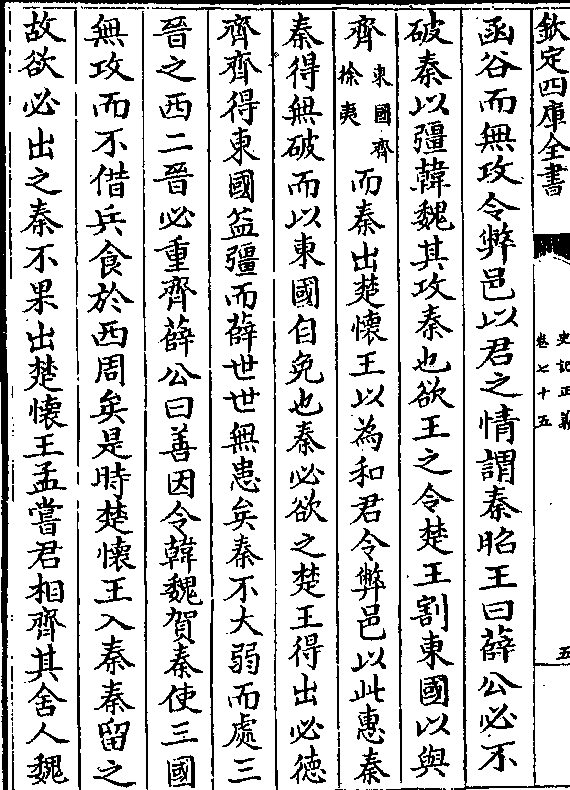 欽定四庫全書
史記正義
卷七十五
五
函谷而無攻令弊邑以君之情謂秦昭王曰薛公必不
破秦以彊韓魏其攻秦也欲王之令楚王割東國以與
齊東國齊徐夷而秦出楚懷王以為和君令弊邑以此惠秦
秦得無破而以東國自免也秦必欲之楚王得出必德
齊齊得東國益彊而薛世世無患矣秦不大弱而處三
晉之西三晉必重齊薛公曰善因令韓魏賀秦使三國
無攻而不借兵食於西周矣是時楚懷王入秦秦留之
故欲必出之秦不果出楚懷王孟嘗君相齊其舍人魏